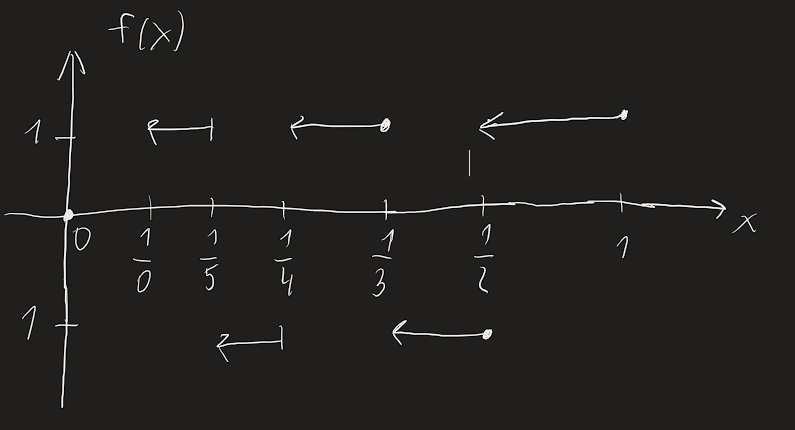 f(x)
1
0 1/0 1/5 1/4 1/3 1/2 1 x
1